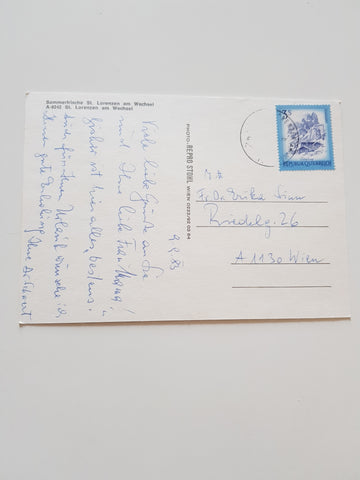 Sommerfrische St. Lorenzen am Wechsel
A-8242 St. Lorenzen am Wechsel
9.9.83
Viele liebe Grüße an Sie
und Ihre liebe Frau Mama!
bisher ist hier alles bestens.
für Ihren Urlaub wünsche ich
Ihnen gute Erholung Ihre
PHOTO-REPRO STOHL WIEN 0222/92 03 84
3
REPUBLIK ÖSTERREICH
Fr. Dr. Erika
26
A 1130 Wien